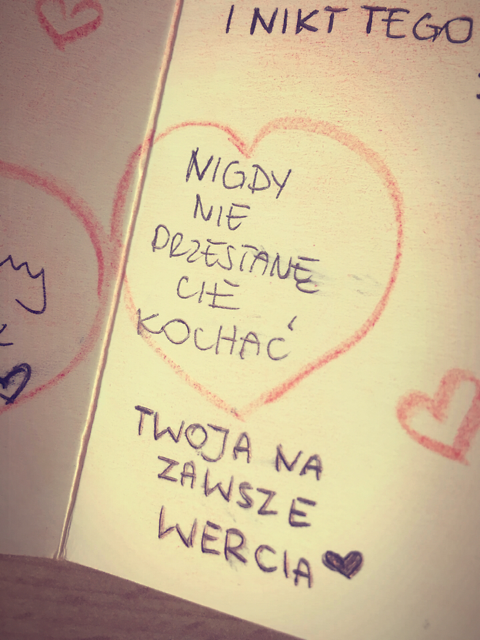 I NIKT TEGO
NIGDY
NIE
PRZESTANĘ
CIĘ
KOCHAĆ
TWOJA NA
ZAWSZE
WERCIA